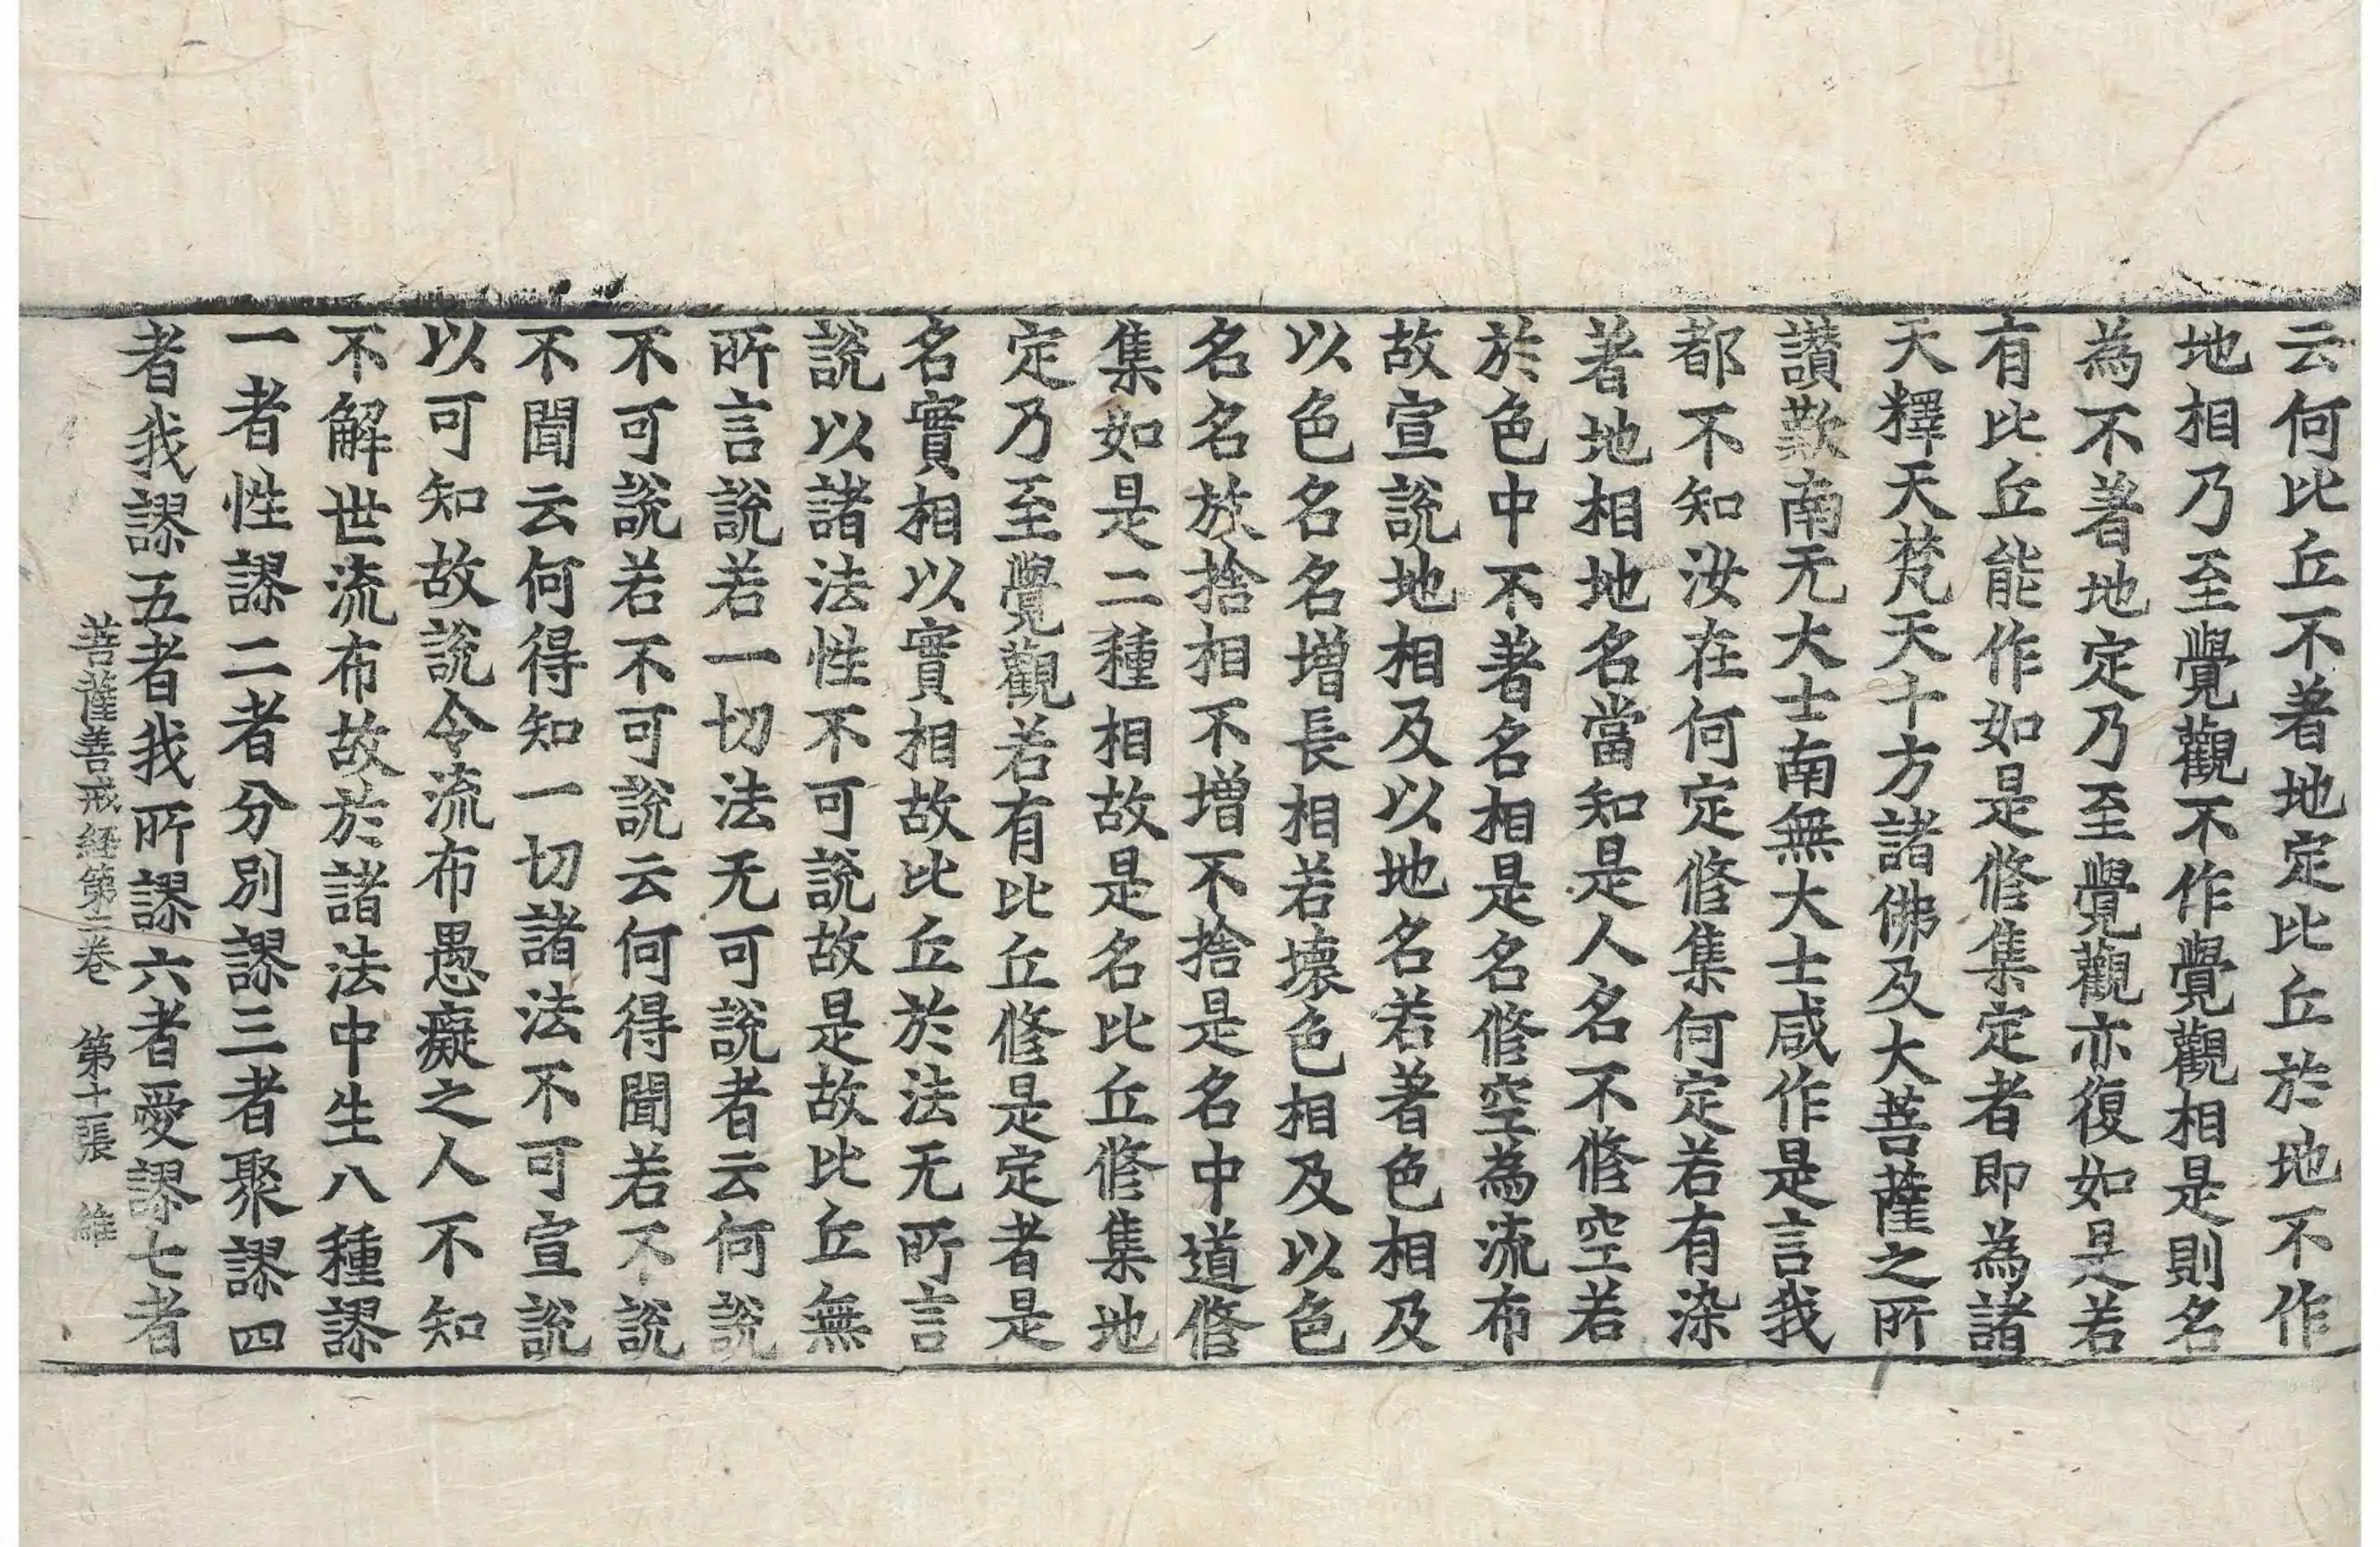 云何比丘不著地定比丘於地不作
地相乃至覺觀不作覺觀相是則名
為不著地定乃至覺觀亦復如是若
有比丘能作如是修集定者即為諸
天釋天梵天十方諸佛及大菩薩之所
讃歎南无大士南無大士咸作是言我
都不知汝在何定修集何定若有染
著地相地名當知是人名不修空若
於色中不著名相是名修空為流布
故宣說地相及以地名若著色相及
以色名名增長相若壞色相及以色
名名放捨相不增不捨是名中道修
集如是二種相故是名比丘修集地
定乃至覺觀若有比丘修是定者是
名實相以實相故比丘於法无所言
說以諸法性不可說故是故比丘無
所言說若一切法无可說者云何說
不可說若不可說云何得聞若不說
不聞云何得知一切諸法不可宣說
以可知故說令流布愚癡之人不知
不解世流布故於諸法中生八種謬
一者性謬二者分別謬三者聚謬四
者我謬五者我所謬六者愛謬七者
菩薩善戒経第二卷 第十張 維